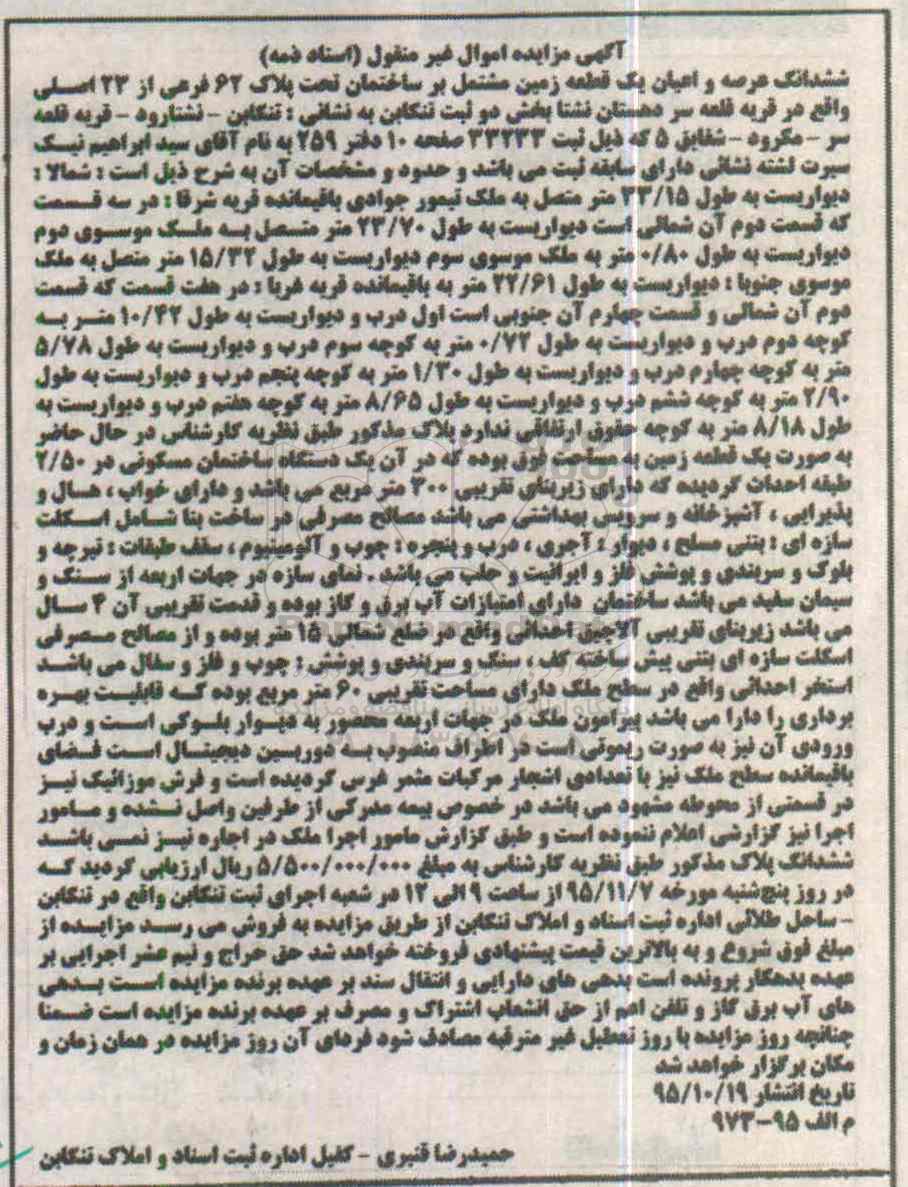 آگهی مزایده اموال غیر منقول (اسناد ذمه)
ششدانگ عرصه و اعیان یک قطعه زمین مشتمل بر ساختمان تحت پلاک ۶۲ فرعی از ۲۳ اصلی
واقع در قریه قلعه سر دهستان نشتا بخش دو ثبت تنکابن به نشانی : تنکابن - نشتارود - قریه قلعه
سر - مکرود - شقایق ۵ که ذیل ثبت ۳۳۲۳۳ صفحه ۱۰ دفتر ۲۵۹ به نام آقای سید ابراهیم نیک
سیرت لشته نشائی دارای سابقه ثبت می باشد و حدود و مشخصات آن به شرح ذیل است : شمالا :
دیواریست به طول ۳۳/۱۵ متر متصل به ملک تیمور جوادی باقیمانده قریه شرقا : در سه قسمت
که قسمت دوم آن شمالی است دیواریست به طول ۲۳/۷۰ متر متصل به ملک موسوی دوم
دیواریست به طول ۰/۸۰ متر به ملک موسوی سوم دیواریست به طول ۱۵/۳۲ متر متصل به ملک
موسوی جنوبا : دیواریست به طول ۲۲/۶۱ متر به باقیمانده قریه غربا : در هفت قسمت که قسمت
دوم آن شمالی و قسمت چهارم آن جنوبی است اول درب و دیواریست به طول ۱۰/۴۲ متر به
کوچه دوم درب و دیواریست به طول ۰/۷۲ متر به کوچه سوم درب و دیواریست به طول ۵/۷۸
متر به کوچه چهارم درب و دیواریست به طول ۱/۳۰ متر به کوچه پنجم درب و دیواریست به طول
۲/۹۰ متر به کوچه ششم درب و دیواریست به طول ۸/۶۵ متر به کوچه هفتم درب و دیواریست به
طول ۸/۱۸ متر به کوچه حقوق ارتفاقی ندارد پلاک مذکور طبق نظریه کارشناس در حال حاضر
به صورت یک قطعه زمین به مساحت فوق بوده که در آن یک دستگاه ساختمان مسکونی در ۲/۵۰
طبقه احداث گردیده که دارای زیربنای تقریبی ۳۰۰ متر مربع می باشد و دارای خواب ، هال و
پذیرایی ، آشپزخانه و سرویس بهداشتی می باشد مصالح مصرفی در ساخت بنا شامل اسکلت
سازه ای : بتنی مسلح ، دیوار : آجری ، درب و پنجره : چوب و آلومینیوم ، سقف طبقات : تیرچه و
بلوک و سربندی و پوشش فلز و ایرانیت و حلب می باشد . نمای سازه در جهات اربعه از سنگ و
سیمان سفید می باشد ساختمان دارای امتیازات آب برق و گاز بوده و قدمت تقریبی آن ۴ سال
می باشد زیربنای تقریبی آلاچیق احداثی واقع در ضلع شمالی ۱۵ متر بوده و از مصالح مصرفی
اسکلت سازه ای بتنی پیش ساخته کف ، سنگ و سربندی و پوشش : چوب و فلز و سفال می باشد
استخر احداثی واقع در سطح ملک دارای مساحت تقریبی ۶۰ متر مربع بوده که قابلیت بهره
برداری را دارا می باشد پیرامون ملک در جهات اربعه محصور به دیوار بلوکی است و درب
ورودی آن نیز به صورت ریموتی است در اطراف منصوب به دوربین دیجیتال است فضای
باقیمانده سطح ملک نیز با تعدادی اشجار مرکبات مثمر غرس گردیده است و فرش موزائیک نیز
در قسمتی از محوطه مشهود می باشد در خصوص بیمه مدرکی از طرفین واصل نشده و مامور
اجرا نیز گزارشی اعلام ننموده است و طبق گزارش مامور اجرا ملک در اجاره نیز نمی باشد
ششدانگ پلاک مذکور طبق نظریه کارشناس به مبلغ ۵/۵۰۰/۰۰۰/۰۰۰ ریال ارزیابی گردید که
در روز پنجشنبه مورخه ۹۵/۱۱/۷ از ساعت ۹ الی ۱۲ در شعبه اجرای ثبت تنکابن واقع در تنکابن
- ساحل طلائی اداره ثبت اسناد و املاک تنکابن از طریق مزایده به فروش می رسد مزایده از
مبلغ فوق شروع و به بالاترین قیمت پیشنهادی فروخته خواهد شد حق حراج و نیم عشر اجرایی بر
عهده بدهکار پرونده است بدهی های دارایی و انتقال سند بر عهده برنده مزایده است بدهی
های آب برق گاز و تلفن اعم از حق انشعاب اشتراک و مصرف بر عهده برنده مزایده است ضمنا
چنانچه روز مزایده با روز تعطیل غیر مترقبه مصادف شود فردای آن روز مزایده در همان زمان و
مکان برگزار خواهد شد
تاریخ انتشار ۹۵/۱۰/۱۹
م الف ۹۵-۹۷۳
حمیدرضا قنبری - کفیل اداره ثبت اسناد و املاک تنکابن